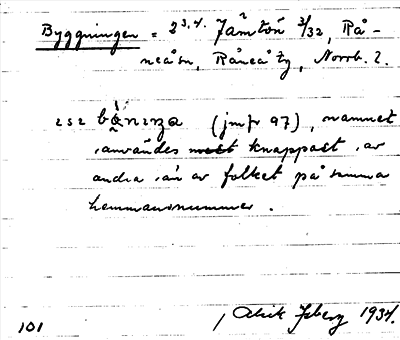 Byggningen = 2 3.4. Jämtön 3/32, Rå-
neå sn, Råneå tg, Norrb. l.
(jmfr 97), namnet
användes knappast av
andra än av folket på samma
hemmansnummer.
101 Alrik Isberg 1934.